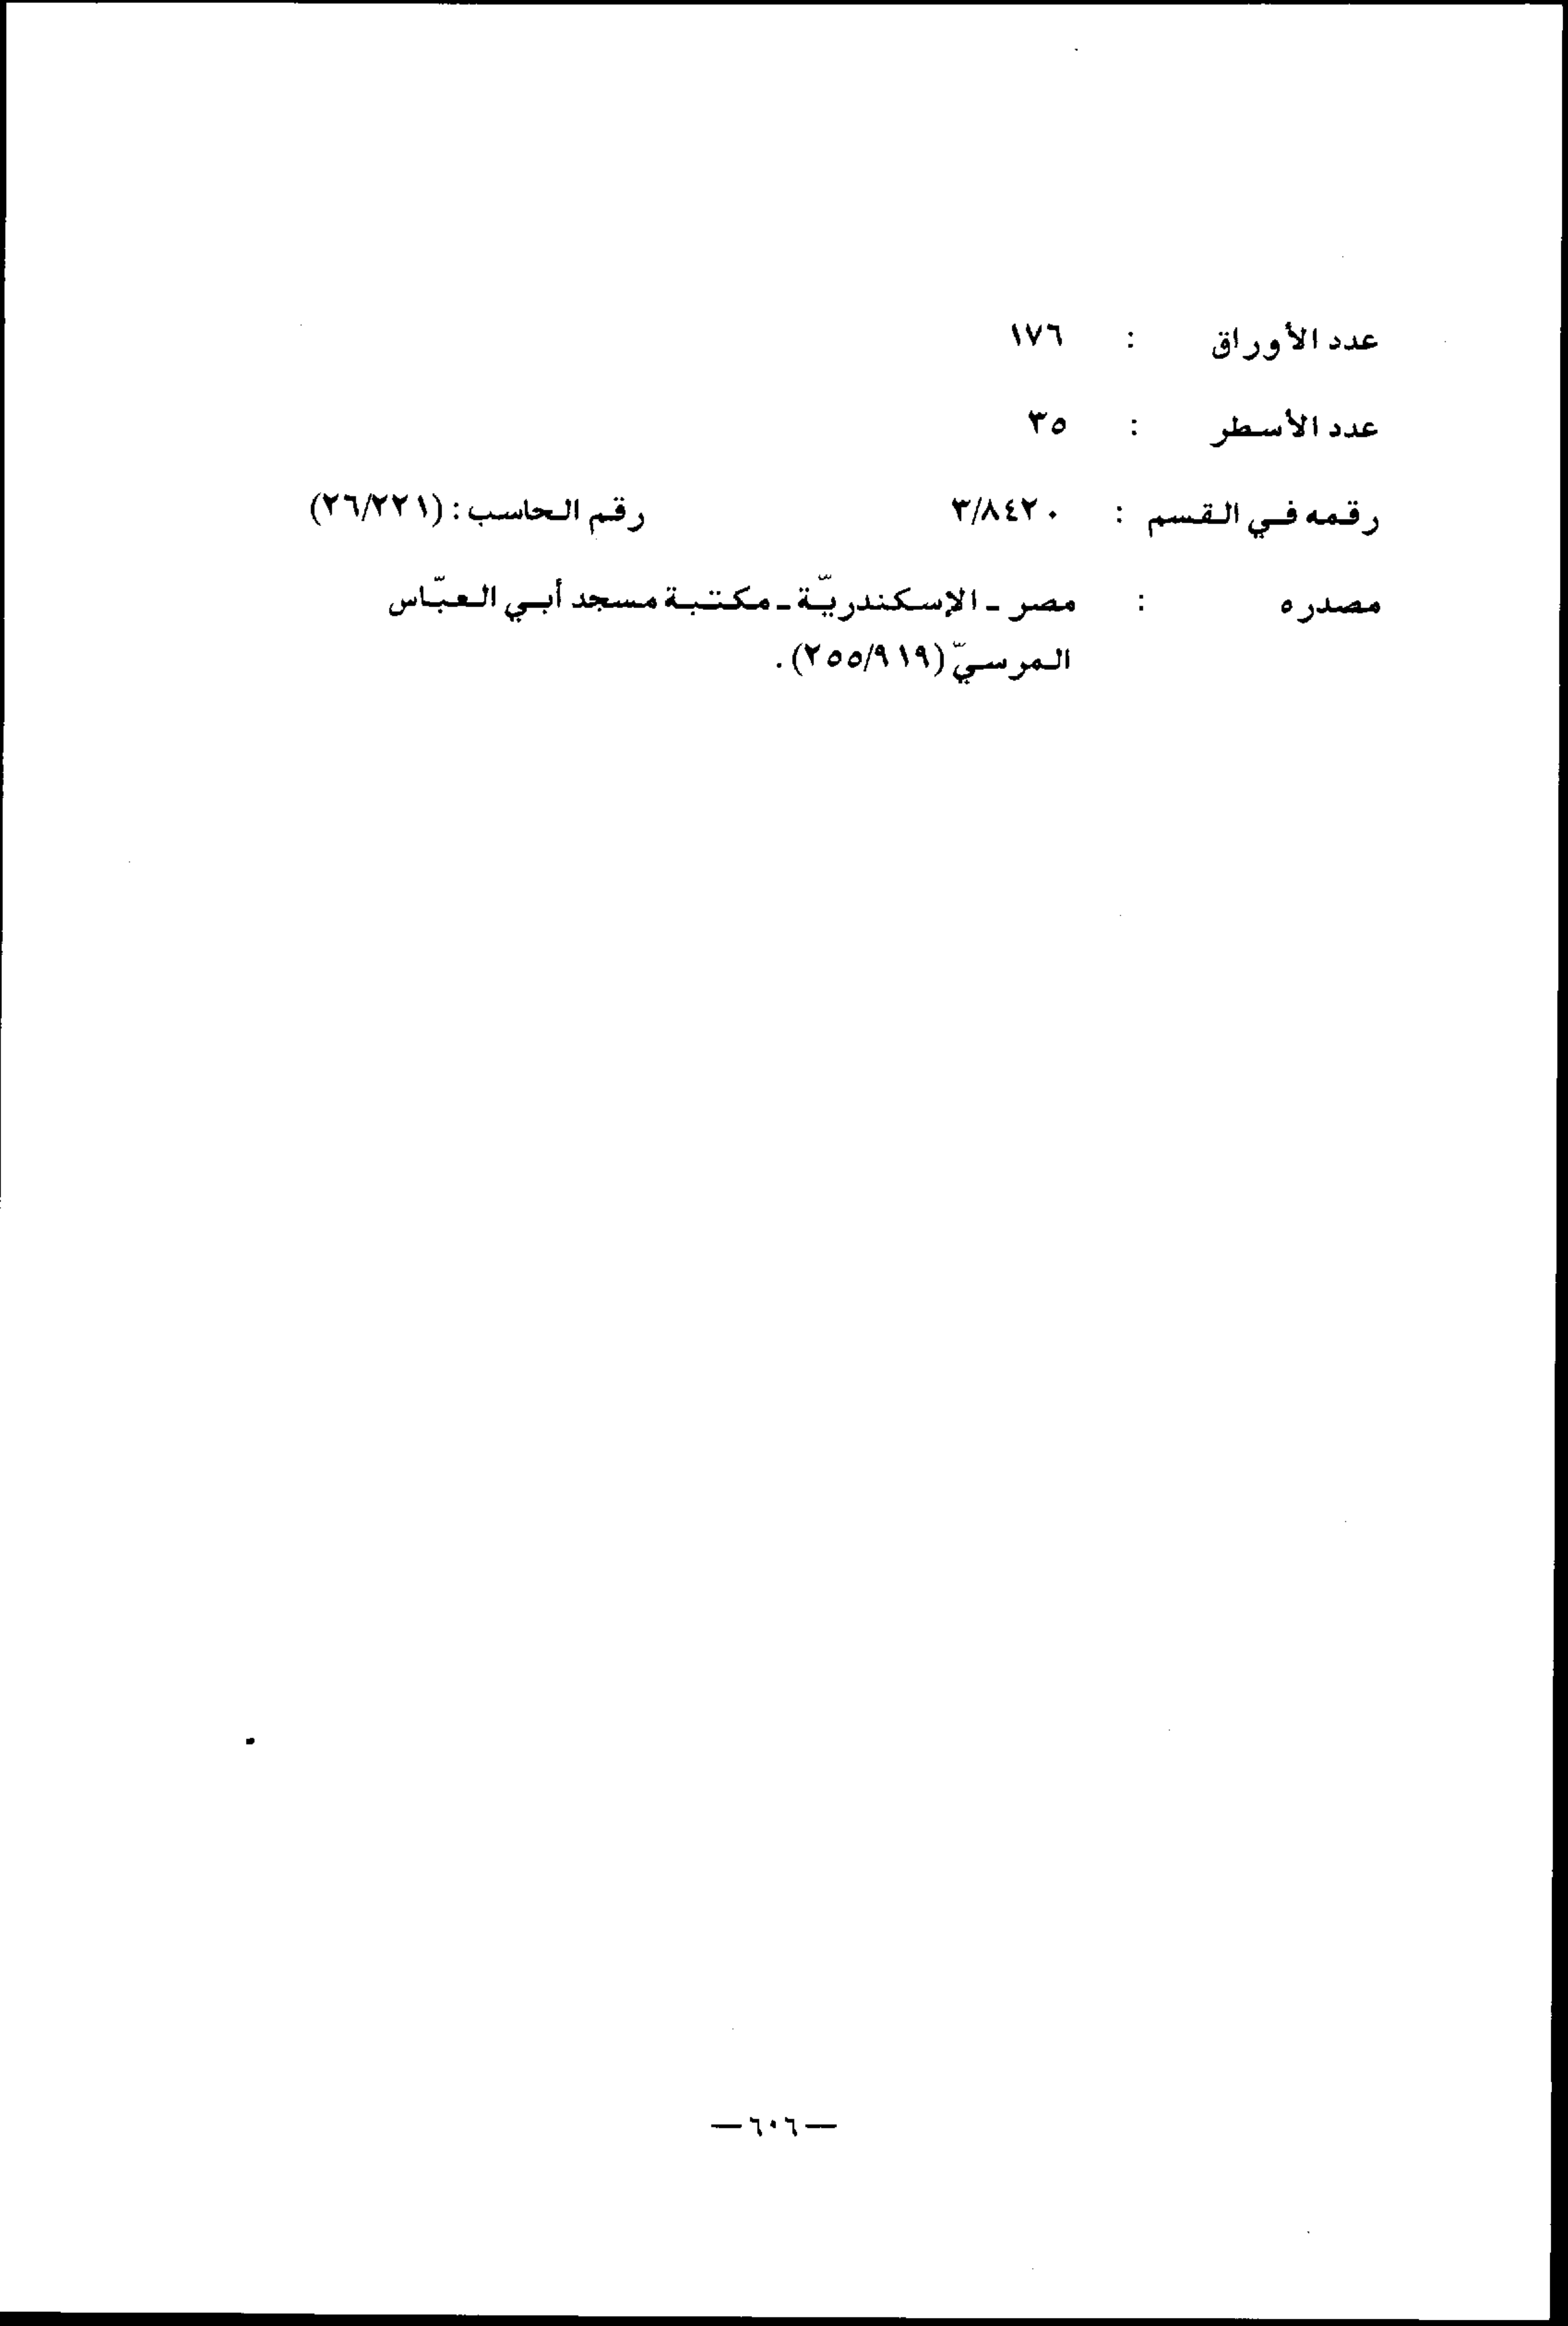 عدد الأوراق : ١٧٦
عدد الأسطر : ٣٥
رقمه في القسم : ٣/٨٤٢٠ رقم الحاسب : (٢٦/٢٢١)
مصدره : مصر ـ الإسكندريّة ـ مكتبة مسجد أبي العبّاس
المرسيّ (٢٥٥/٩١٩) .
— ٦٠٦ —